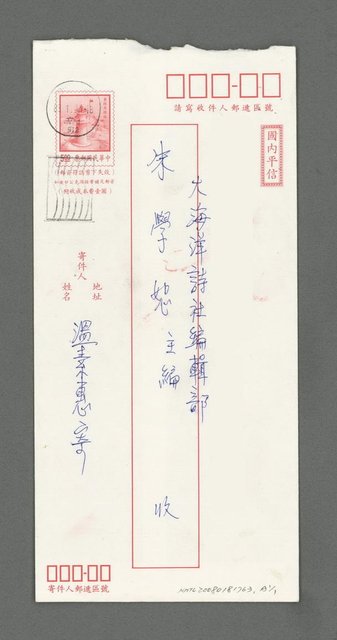 請寫收件人郵遞區號
國內平信
大海洋詩社編輯部
朱學恕主編 收
中華民國郵票
500
寄件人
地址
姓名
溫素惠寄
寄件人郵遞區號
NMTL20080181763, A 1/1